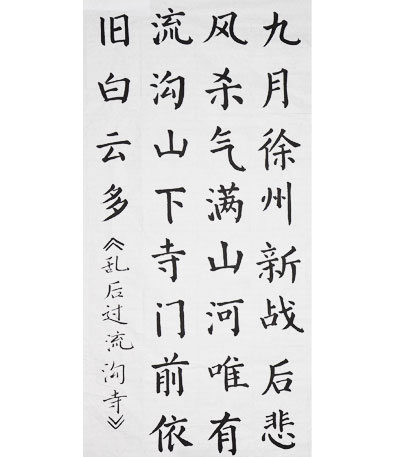 九月徐州新战后悲
风杀气满山河唯有
流沟山下寺门前依
旧白云多《乱后过流沟寺》